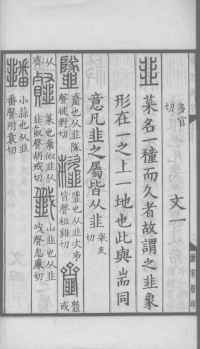 多官切 文一
韭 菜名一種而久者故謂之韭象
形在一之上一地也此與耑同
意凡韭之屬皆从韭 舉友切
䪢 䪡也从韭隊聲徒對切 䪡 䪢也从韭次𠂔皆聲祖雞切 齏 䪡或
从齊 䪥 菜也葉似韭从韭㕡聲胡戒切 韱 山韭也从韭𢦟聲息廉切
䪤 小蒜也从韭番聲附袁切